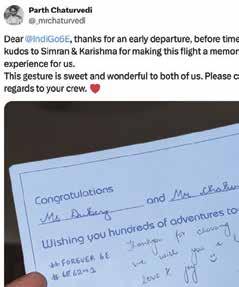 Parth Chaturvedi
@_mrchaturvedi
Dear @IndiGo6E, thanks for an early departure, before time
kudos to Simran & Karishma for making this flight a memor
experience for us.
This gesture is sweet and wonderful to both of us. Please c
regards to your crew. ❤️
Congratulations
Ms and Mr
Wishing you hundreds of adventures to
Thankyou for choosing
# FOREVER 6E
we wish you a
Love &